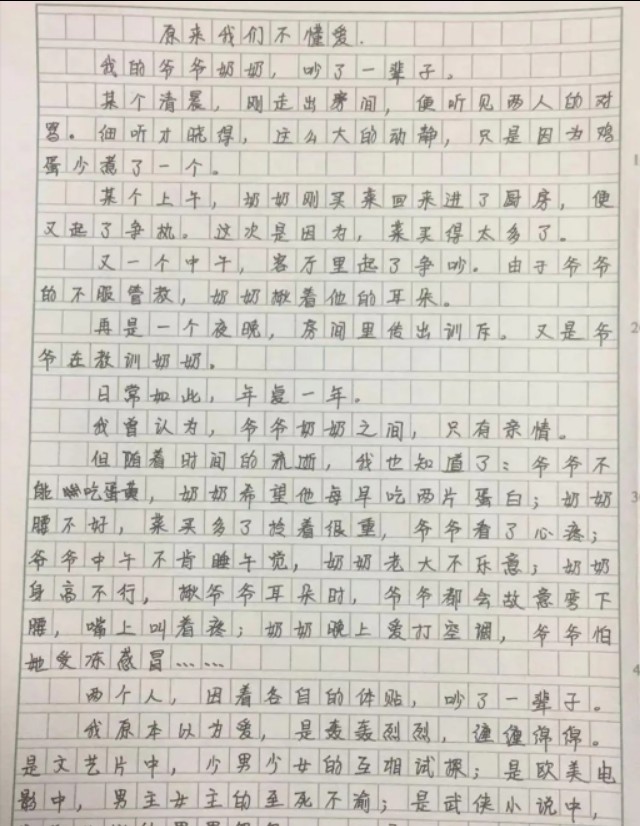 原来我们不懂爱.
我的爷爷奶奶，吵了一辈子。
某个清晨，刚走出房间，便听见两人的对
骂。细听才晓得，这么大的动静，只是因为鸡
蛋少煮了一个。
某个上午，奶奶刚买菜回来进了厨房，便
又起了争执。这次是因为，菜买得太多了。
又一个中午，客厅里起了争吵。由于爷爷
的不服管教，奶奶揪着他的耳朵。
再是一个夜晚，房间里传出训斥。又是爷
爷在教训奶奶。
日常如此，年复一年。
我曾认为，爷爷奶奶之间，只有亲情。
但随着时间的流逝，我也知道了：爷爷不
能吃蛋黄，奶奶希望他每早吃两片蛋白；奶奶
腰不好，菜买多了拎着很重，爷爷看了心疼；
爷爷中午不肯睡午觉，奶奶老大不乐意；奶奶
身高不行，揪爷爷耳朵时，爷爷都会故意弯下
腰，嘴上叫着疼；奶奶晚上爱打空调，爷爷怕
她受冻感冒……
两个人，因着各自的体贴，吵了一辈子。
我原本以为爱，是轰轰烈烈，缠缠绵绵。
是文艺片中，少男少女的互相试探；是欧美电
影中，男主女主的至死不渝；是武侠小说中，